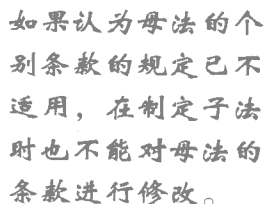 如果认为母法的个
别条款的规定已不
适用，在制定子法
时也不能对母法的
条款进行修改。